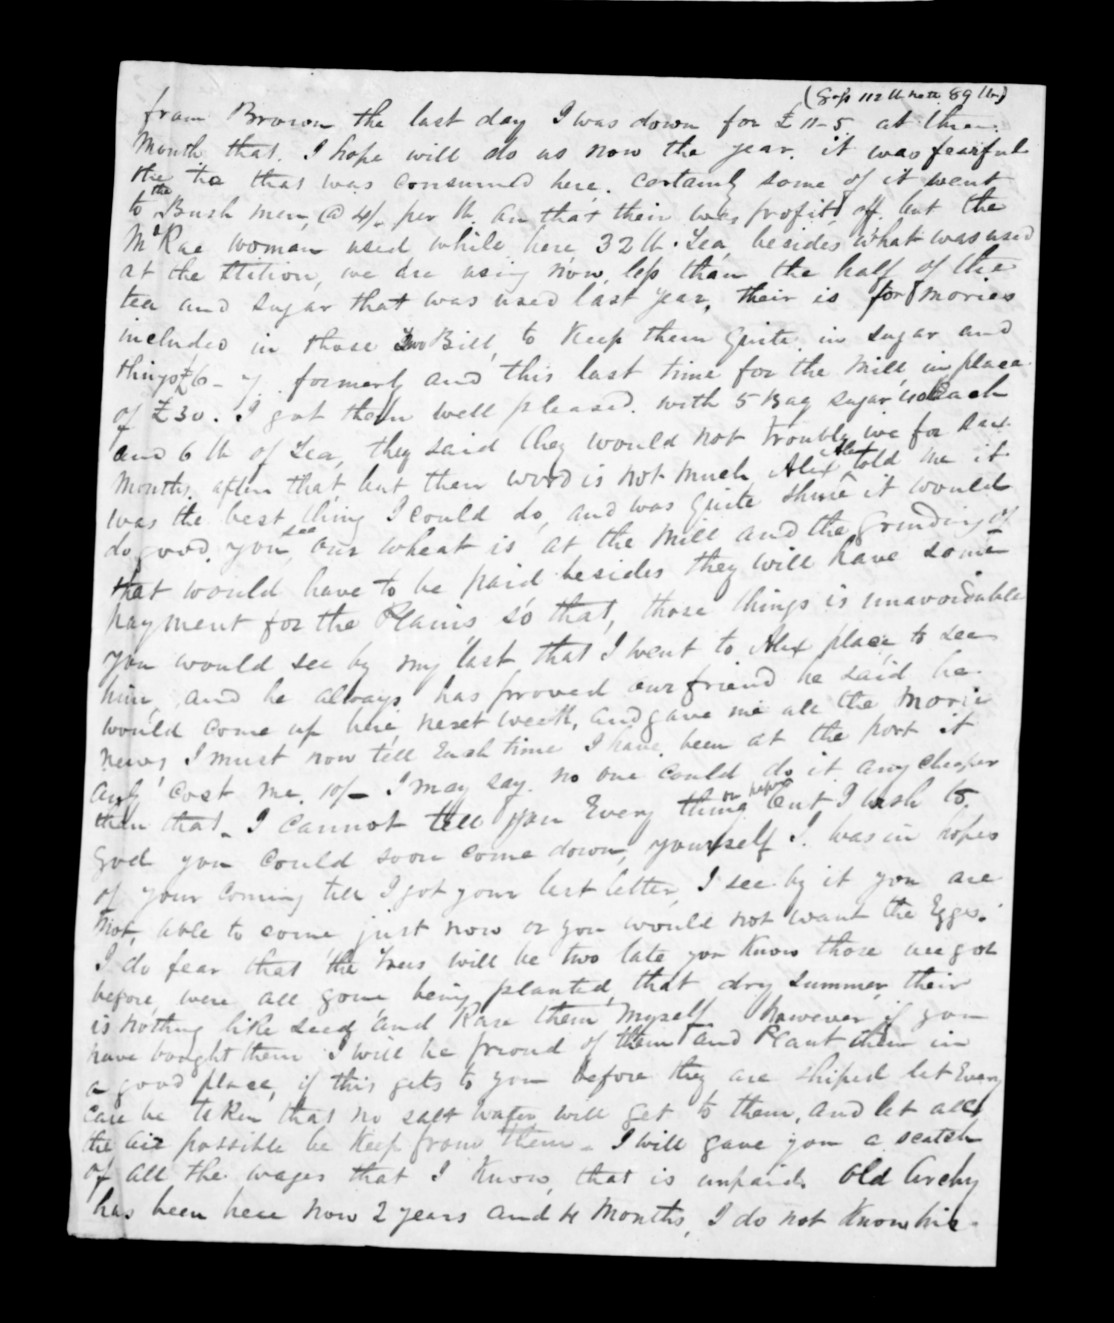 (Gross 112 lb nett 89 lbs)
from Brown the last day I was down for £11-5 at three
Month that. I hope will do us now the year. it was fearful
the tea that was consumed here. certainly some of it went
to the Bush men, @ 4/. per lb. an that their was profit off. but the
McRae woman used while here 32 lb. Tea, besides what was used
at the Station, we are using now, less than the half of the
tea and sugar that was used last year, their is for mories
included in those two Bill, to Keep them quite in sugar and
things £6- 7. formerly and this last time for the Mill, in place
of £30. I got them well pleased. with 5 Bag sugar each
and 6 lb of Tea, they said they would not trouble me for
Months, after that, but their word is not much Alex told me it
was the best thing I could do, and was quite shure it would
do good, you see our wheat is at the Mill and the Grinding of
that would have to be paid besides they will have some
payment for the Plains so that, those things is unavoidable
you would see by my last, that I went to Alex place to see
him, and he always has proved our friend he said he
would come up here next week, and gave me all the Morie
news, I must now tell Each time I have been at the port it
only cost me. 10/- I may say. no one could do it any cheaper
then that. I cannot tell you Every thing on paper but I wish to
god you could soon come down, yourself I. was in hopes
of your coming till I got your last letter, I see by it you are
not, able to come just now or you would not want the Eggs.
I do fear that the Trees will be two late you Know those we got
before, were all gone being planted, that dry summer, their
is nothing like seed, and Rase them myself However if you
have bought them I will be proud of them and Plant them in
a good place, if this gets to you before they are shiped let Every
care be taken, that no salt water will get to them, and let all
the air possible be Keep from them - I will gave you a scatch
of all the wages that I Know, that is unpaid. Old Archy
has been here now 2 years and 4 Months, I do not Know his